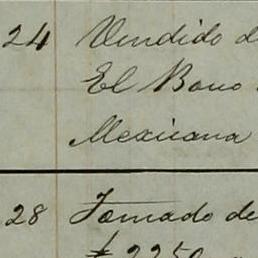 24 Vendido d
El Bono
Mexicana
28 Tomado de
$ 2250